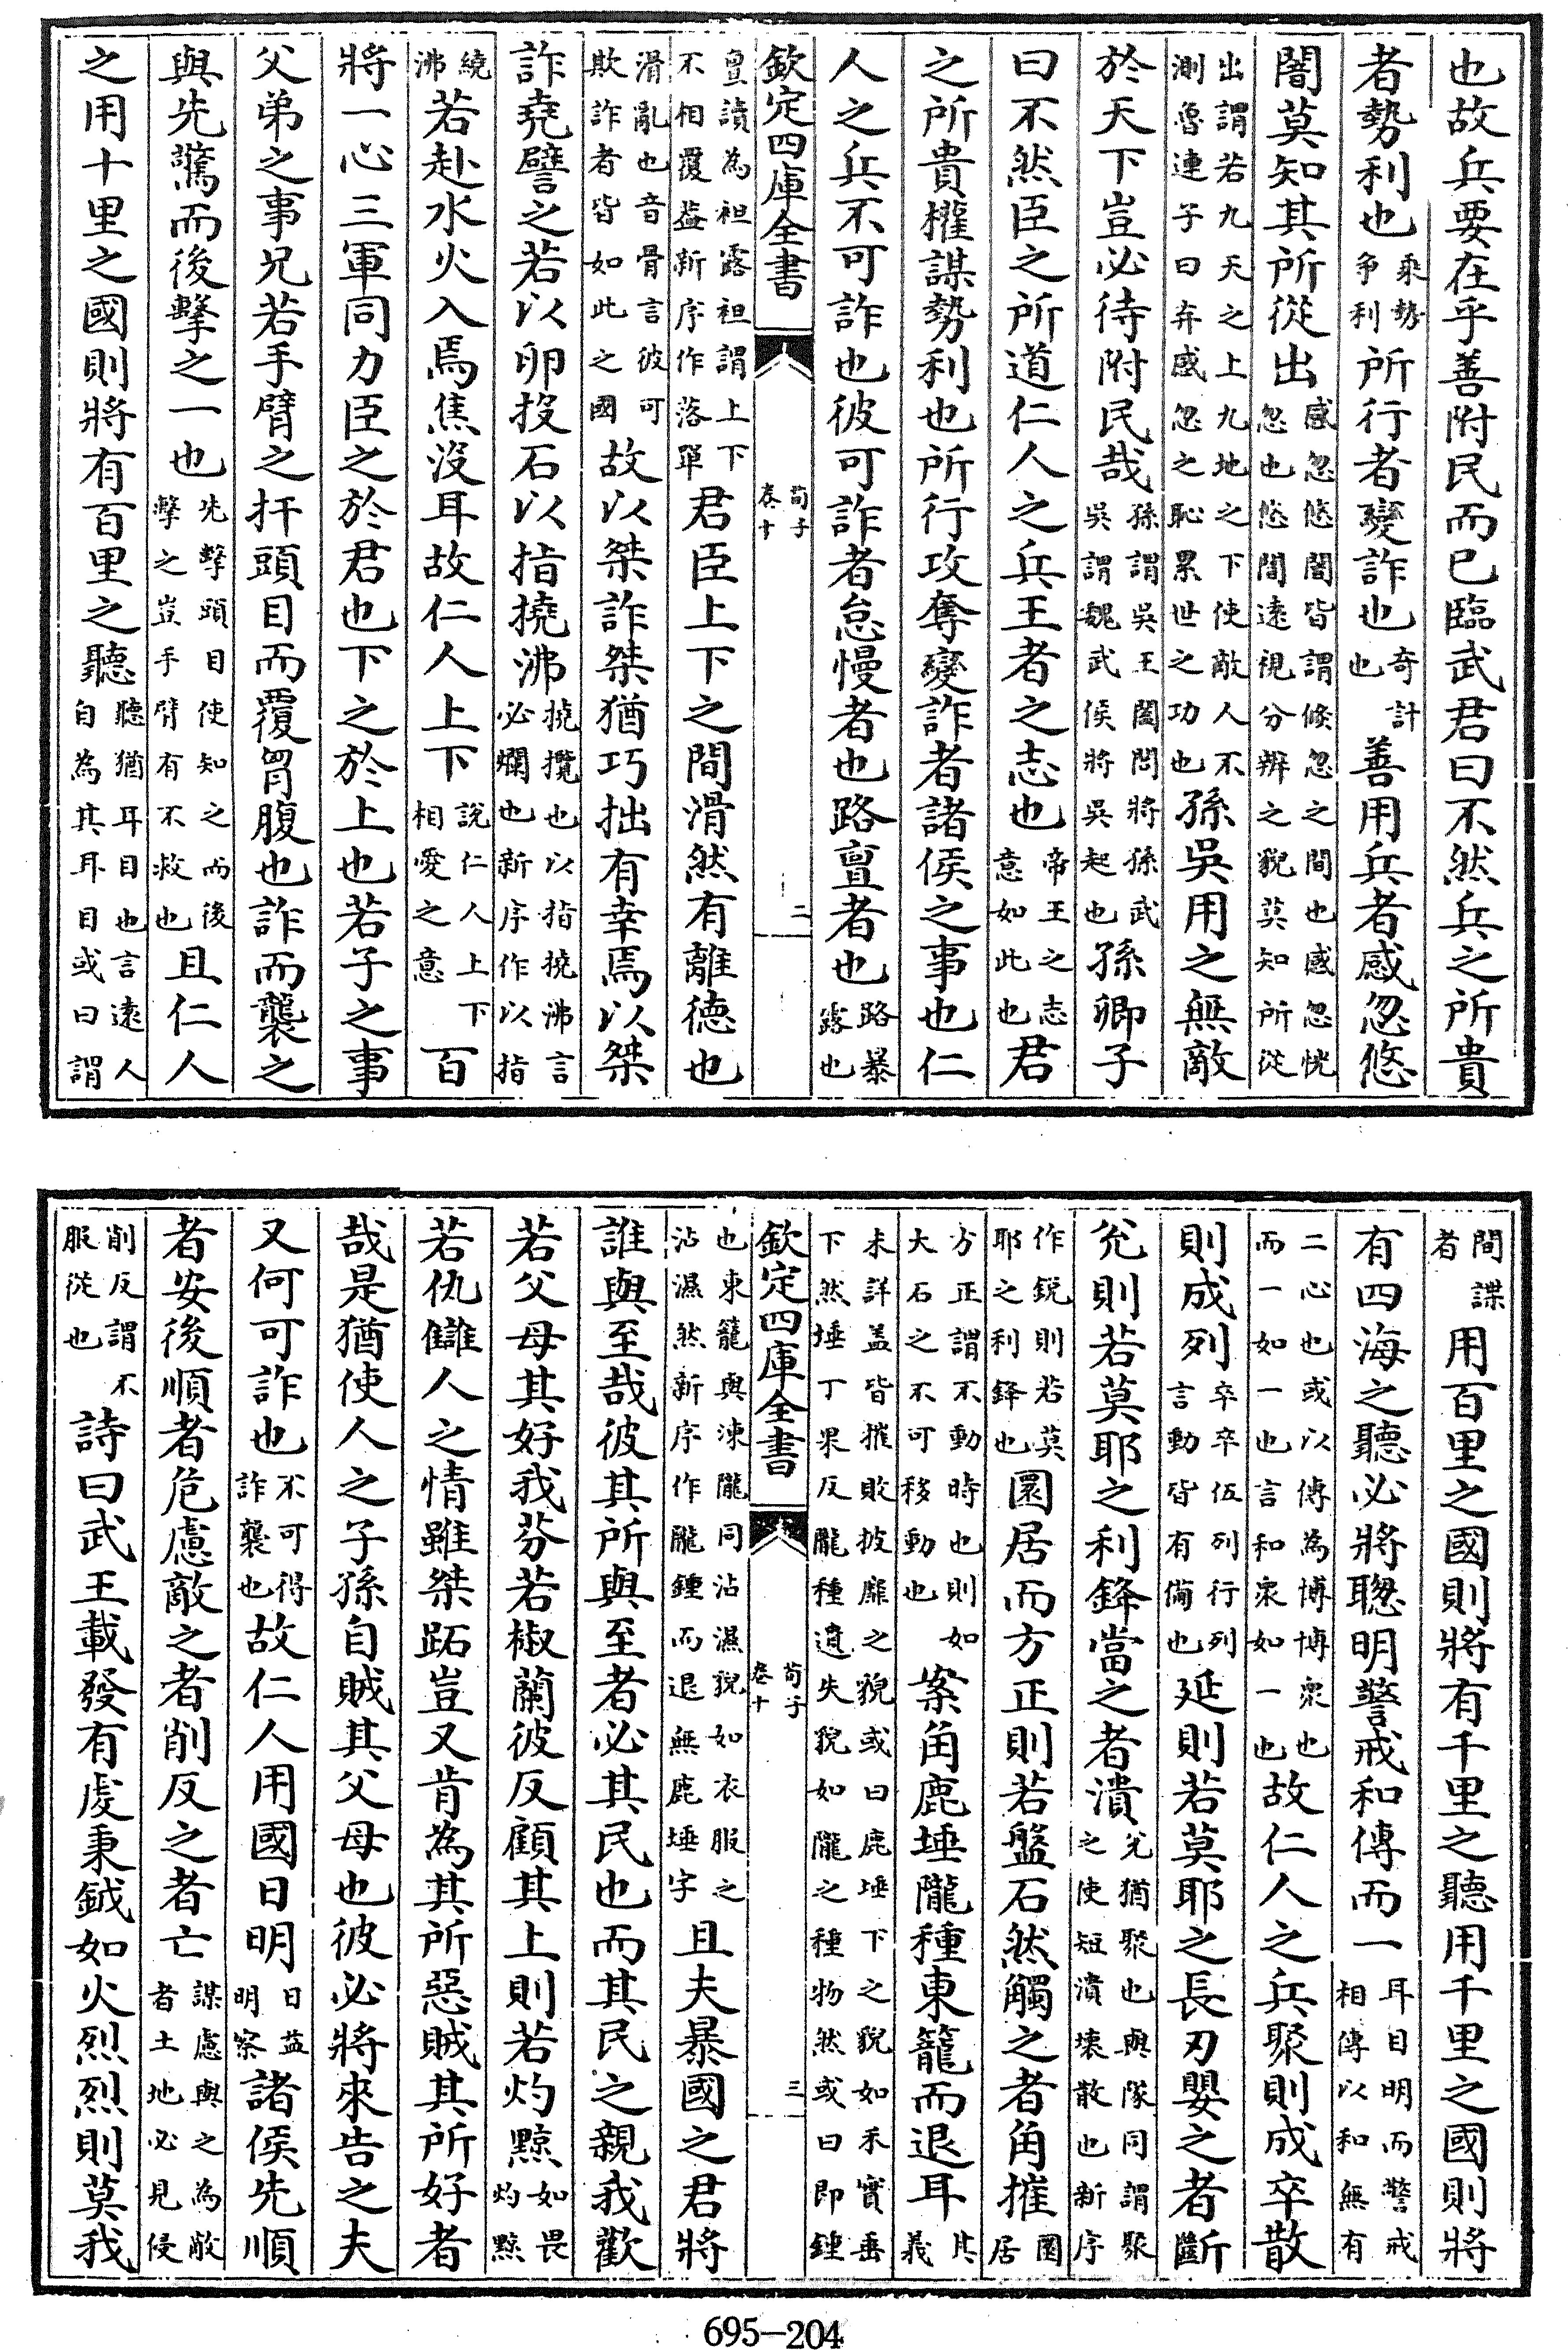 也故兵要在乎善附民而已臨武君曰不然兵之所貴
者勢利也乘勢爭利所行者變詐也奇計也善用兵者感忽悠
闇莫知其所從出感忽悠闇皆謂倏忽之間也感忽恍忽也悠闇遠視分辨之貌莫知所從
出謂若九天之上九地之下使敵人不測魯連子曰弃感忽之恥累世之功也孫吳用之無敵
於天下豈必待附民哉孫謂吳王闔閭將孫武吳謂魏武侯將吳起也孫卿子
曰不然臣之所道仁人之兵王者之志也帝王之志意如此也君
之所貴權謀勢利也所行攻奪變詐者諸侯之事也仁
人之兵不可詐也彼可詐者怠慢者也路亶者也路暴露也
欽定四庫全書 荀子卷十 二
亶讀為袒露袒謂上下不相覆葢新序作落單君臣上下之間滑然有離德也
滑亂也音骨言彼可欺詐者皆如此之國故以桀詐桀猶巧拙有幸焉以桀
詐堯譬之若以卵投石以指撓沸撓攪也以指撓沸言必爛也新序作以指
繞沸若赴水火入焉焦沒耳故仁人上下說仁人上下相愛之意百
將一心三軍同力臣之於君也下之於上也若子之事
父弟之事兄若手臂之扞頭目而覆胷腹也詐而襲之
與先驚而後擊之一也先擊頭目使知之而後擊之豈手臂有不救也且仁人
之用十里之國則將有百里之聽聽猶耳目也言遠人自為其耳目或曰謂
間諜者用百里之國則將有千里之聽用千里之國則將
有四海之聽必將聰明警戒和傳而一耳目明而警戒相傳以和無有
二心也或以傳為博博衆也而一如一也言和衆如一也故仁人之兵聚則成卒散
則成列卒卒伍列行列言動皆有備也延則若莫耶之長刃嬰之者斷
兊則若莫耶之利鋒當之者潰兊猶聚也與隊同謂聚之使短潰壞散也新序
作銳則若莫耶之利鋒也圜居而方正則若盤石然觸之者角摧圜居
方正謂不動時也則如大石之不可移動也案角鹿埵隴種東籠而退耳其義
未詳盖皆摧敗披靡之貌或曰鹿埵下之貌如禾實垂下然埵丁果反隴種遺失貌如隴之種物然或曰即鍾
欽定四庫全書 荀子卷十 三
也東籠與涷隴同沾濕貌如衣服之沾濕然新序作隴鍾而退無鹿埵字且夫暴國之君將
誰與至哉彼其所與至者必其民也而其民之親我歡
若父母其好我芬若椒蘭彼反顧其上則若灼黥如畏灼黥
若仇讎人之情雖桀跖豈又肯為其所惡賊其所好者
哉是猶使人之子孫自賊其父母也彼必將來告之夫
又何可詐也不可得詐襲也故仁人用國日明日益明察諸侯先順
者安後順者危慮敵之者削反之者亡謀慮與之為敵者土地必見侵
削反謂不服從也詩曰武王載發有虔秉鉞如火烈烈則莫我
695-204